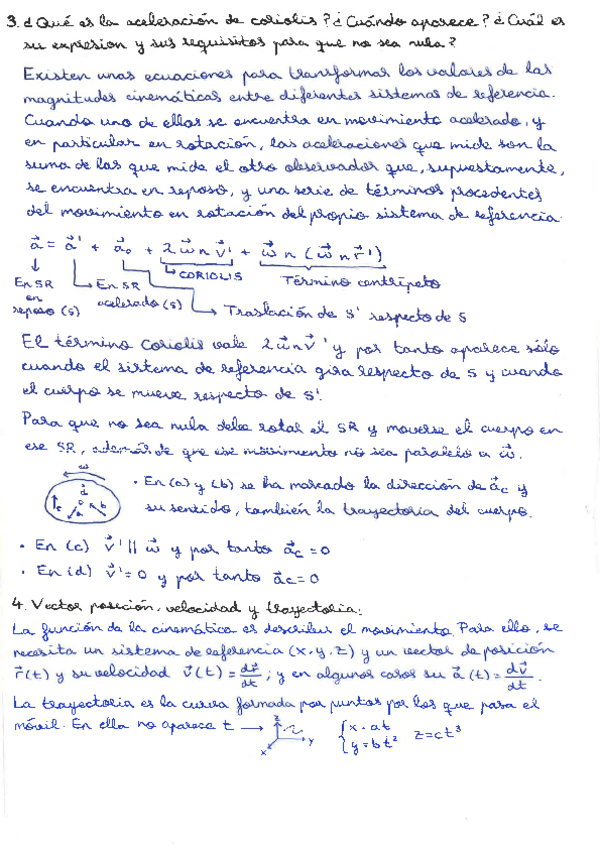 3. ¿Qué es la aceleración de coriolis? ¿Cuándo aparece? ¿Cuál es
su expresion y sus requisitos para que no sea nula?
Existen unas ecuaciones para transformar los valores de las
magnitudes cinemáticas entre diferentes sistemas de referencia.
Cuando uno de ellos se encuentra en movimiento acelerado, y
en particular en rotación, las aceleraciones que mide son la
suma de las que mide el otro observador que, supuestamente,
se encuentra en reposo, y una serie de términos procedentes
del movimiento en rotación del propio sistema de referencia.
a⃗ = a⃗' + a⃗₀ + 2 ω⃗ ∧ v⃗' + ω⃗ ∧ (ω⃗ ∧ r⃗')
CORIOLIS Término centrípeto
En SR en reposo (S)
En SR acelerado (S)
Traslación de S' respecto de S
El término coriolis vale 2 ω⃗ ∧ v⃗' y por tanto aparece sólo
cuando el sistema de referencia gira respecto de S y cuando
el cuerpo se mueve respecto de S'.
Para que no sea nula debe rotar el SR y moverse el cuerpo en
ese SR, además de que ese movimiento no sea paralelo a ω⃗.
ω
d
c a b
· En (a) y (b) se ha marcado la dirección de a⃗c y
su sentido, también la trayectoria del cuerpo.
· En (c) v⃗' || ω⃗ y por tanto a⃗c = 0
· En (d) v⃗' = 0 y por tanto a⃗c = 0
4. Vector posición, velocidad y trayectoria:
La función de la cinemática es describir el movimiento. Para ello, se
necesita un sistema de referencia (x, y, z) y un vector de posición
r⃗(t) y su velocidad v⃗(t) = dr⃗/dt; y en algunos casos su a⃗(t) = dv⃗/dt.
La trayectoria es la curva formada por puntos por los que pasa el
móvil. En ella no aparece t → z y x { x = at y = bt² z = ct³